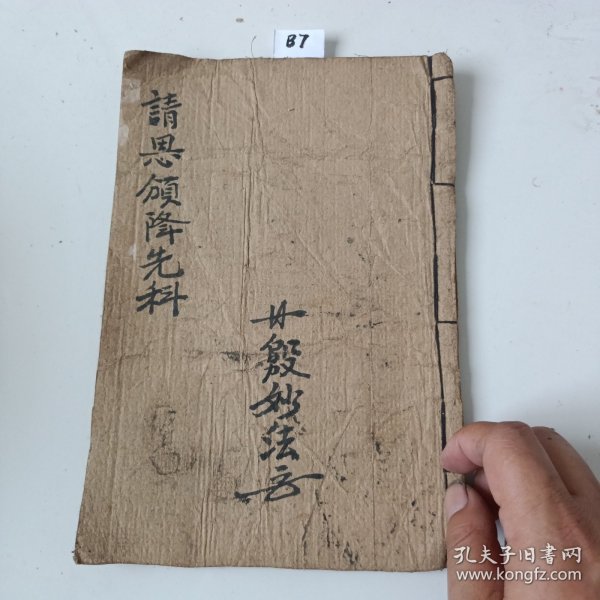 B7
請恩頒降先科
妙法
孔夫子旧书网
www.kongfz.com